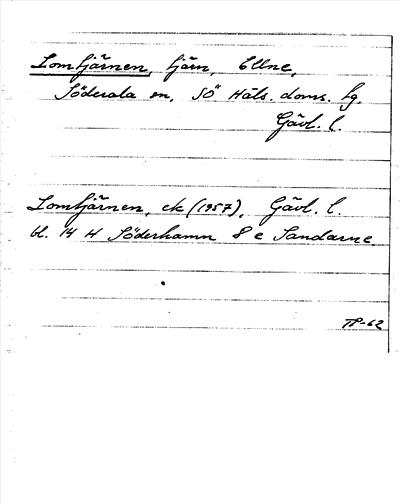 Lomtjärnen, tjärn, Ellne,
Söderala sn, SÖ Häls. doms. hg.
Gävl. l.
Lomtjärnen, ek (1957), Gävl. l.
bl. 14 H Söderhamn 8 e Sandarne
TP-62